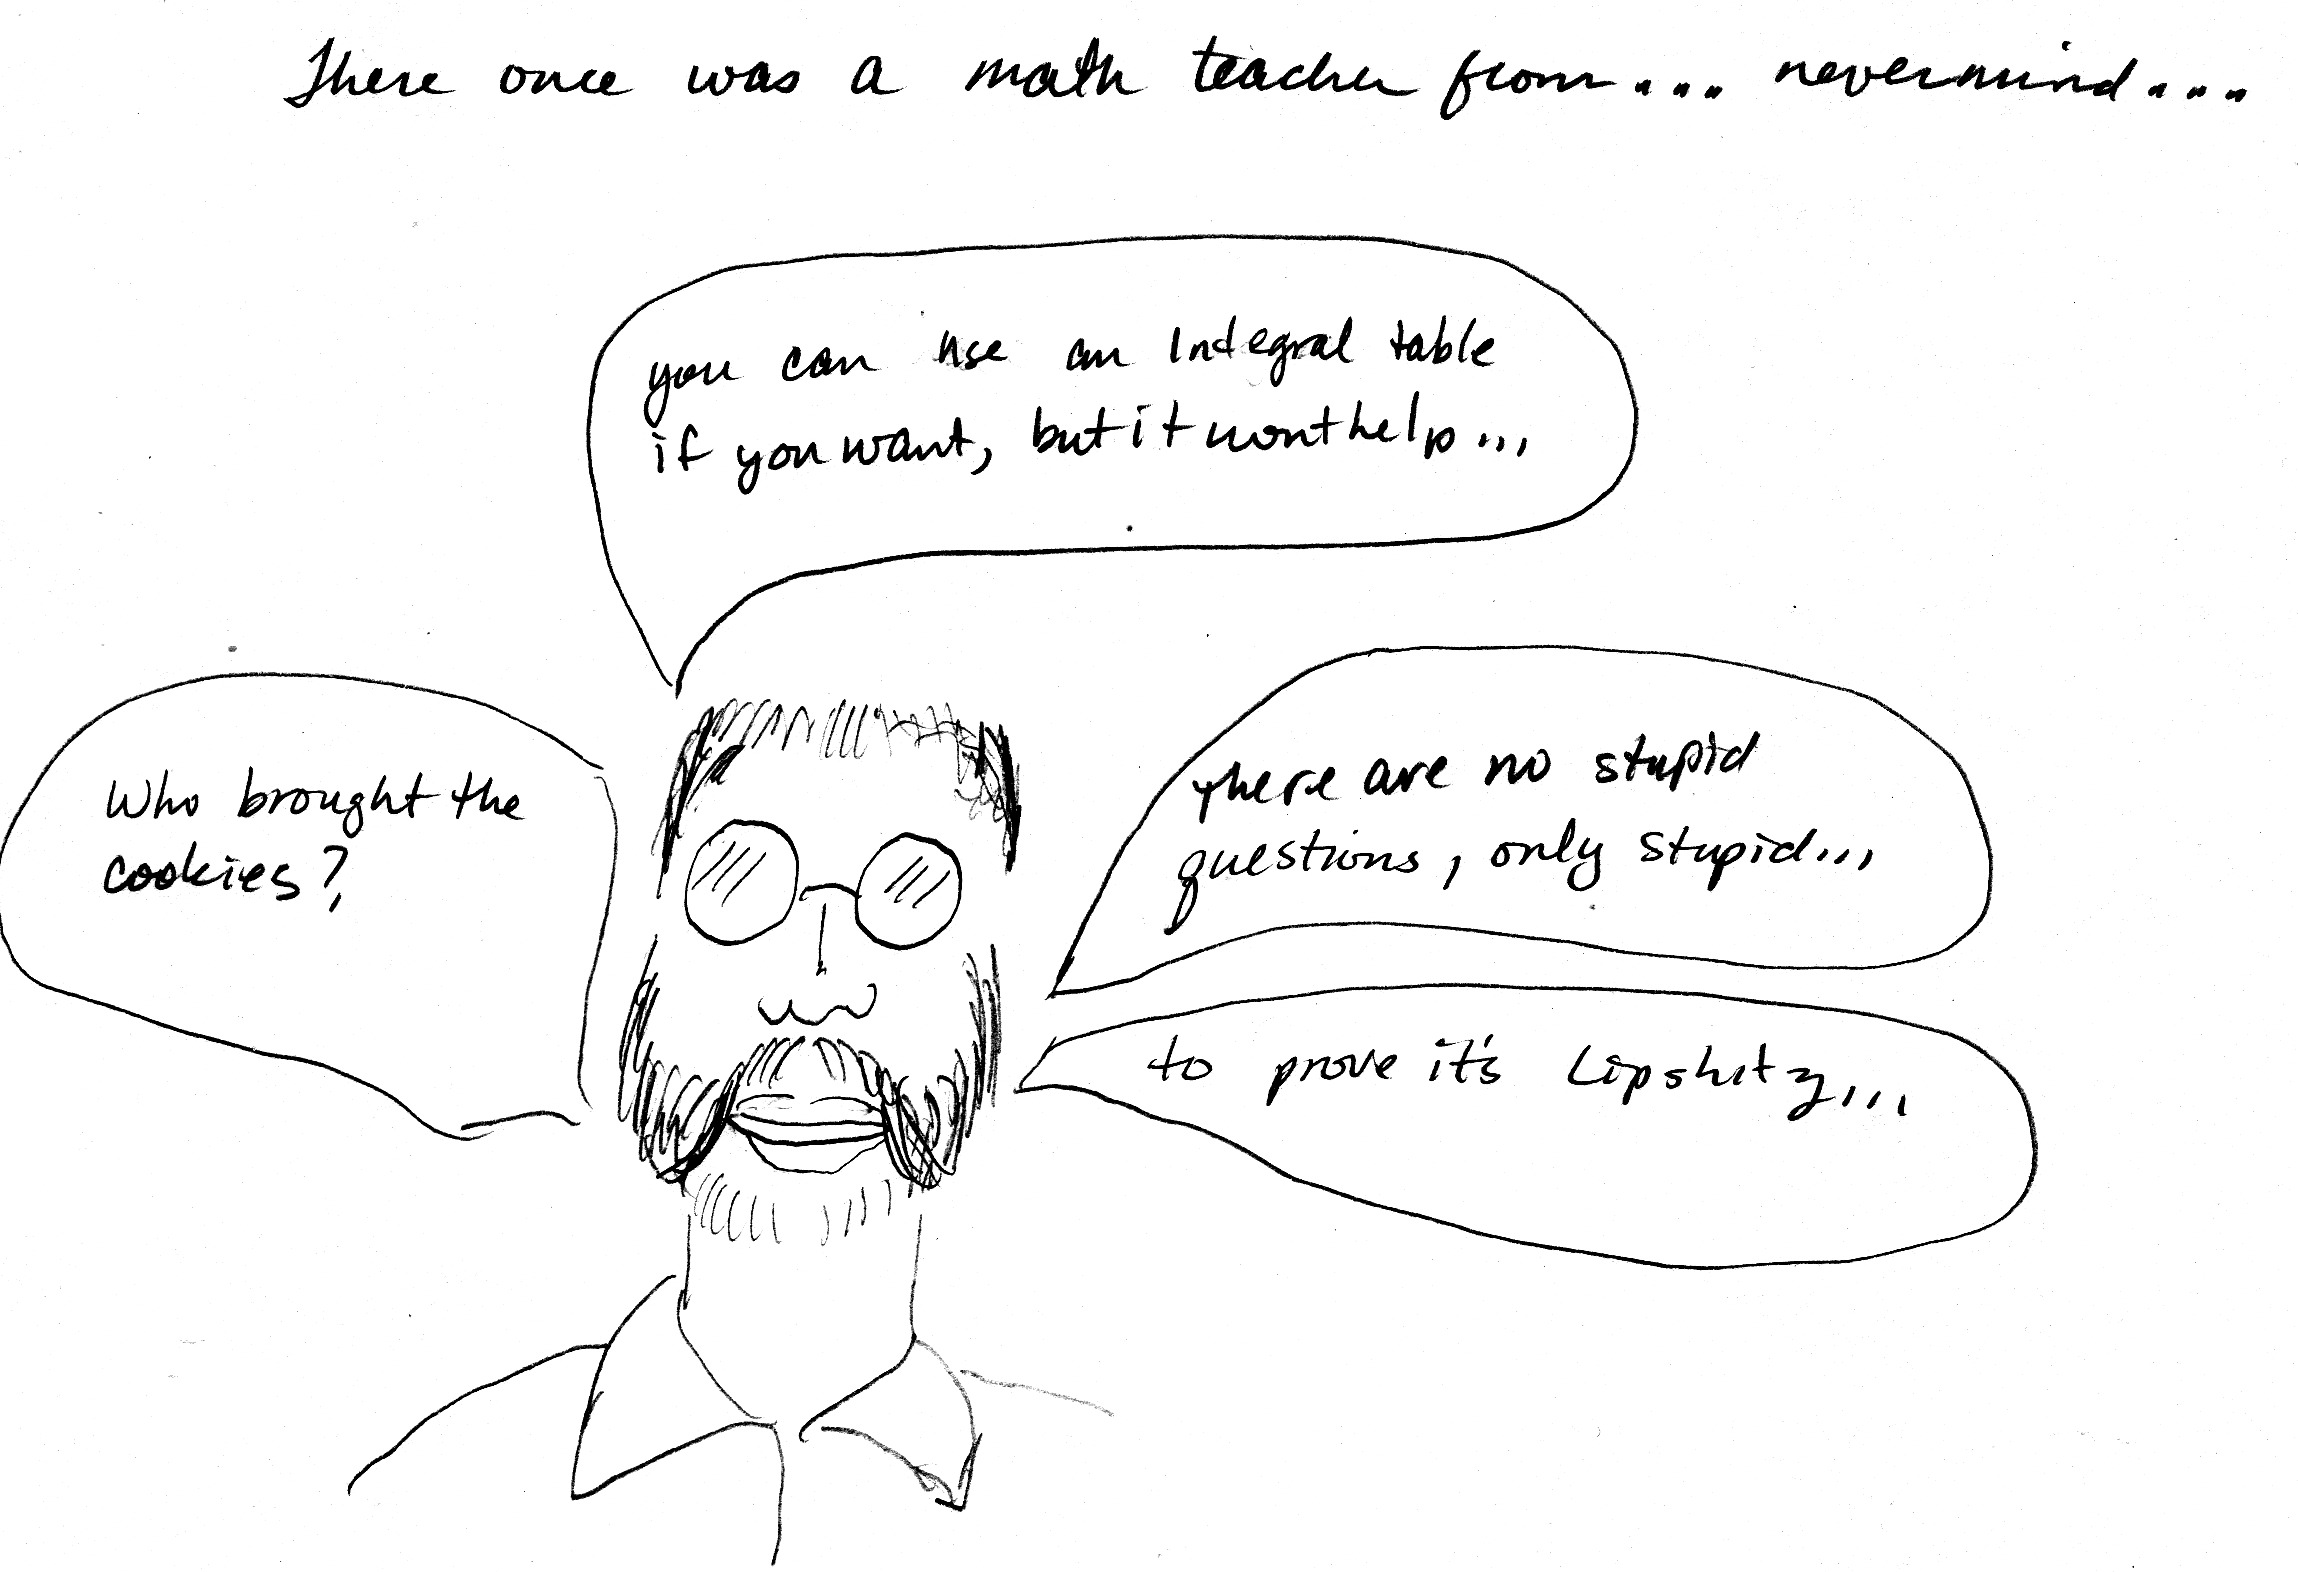 There once was a math teacher from... nevermind...
you can use an Integral table
if you want, but it wont help...
Who brought the
cookies?
There are no stupid
questions, only stupid...
to prove it's Lipshitz...